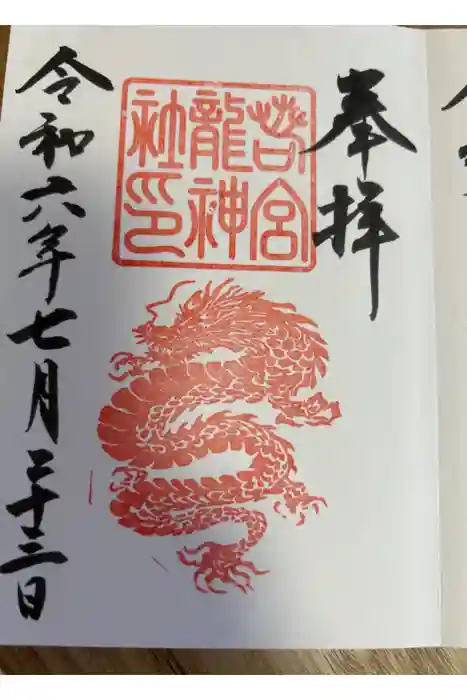 奉拝
若宮
龍神
社印
令和六年七月二十三日